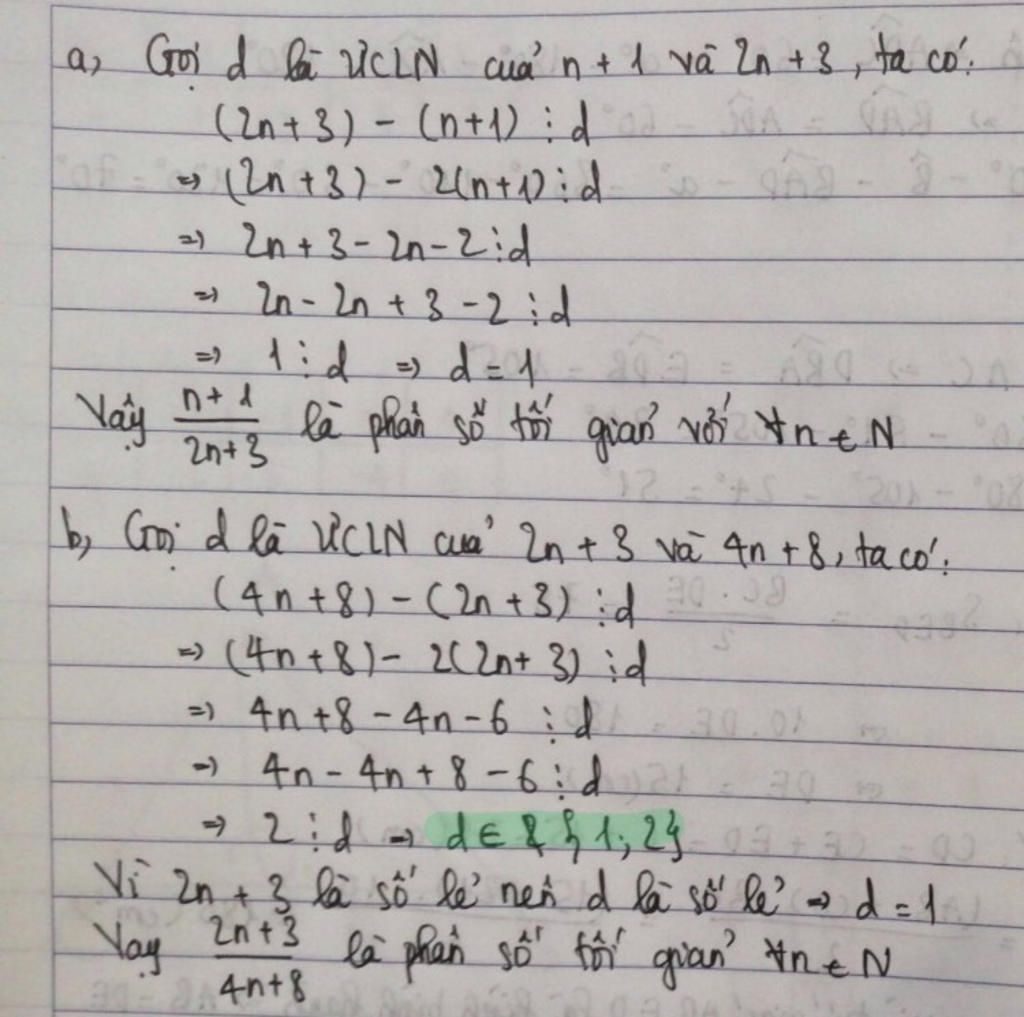 a, Gọi d là ƯCLN của n + 1 và 2n + 3, ta có:
(2n + 3) - (n+1) ⋮ d
=> (2n + 3) - 2(n+1) ⋮ d
=> 2n + 3 - 2n - 2 ⋮ d
=> 2n - 2n + 3 - 2 ⋮ d
=> 1 ⋮ d => d = 1
Vậy (n+1)/(2n+3) là phân số tối giản với ∀n ∈ N
b, Gọi d là ƯCLN của 2n + 3 và 4n + 8, ta có:
(4n + 8) - (2n + 3) ⋮ d
=> (4n + 8) - 2(2n + 3) ⋮ d
=> 4n + 8 - 4n - 6 ⋮ d
=> 4n - 4n + 8 - 6 ⋮ d
=> 2 ⋮ d => d ∈ {1; 2}
Vì 2n + 3 là số lẻ nên d là số lẻ => d = 1
Vậy (2n+3)/(4n+8) là phân số tối giản ∀n ∈ N